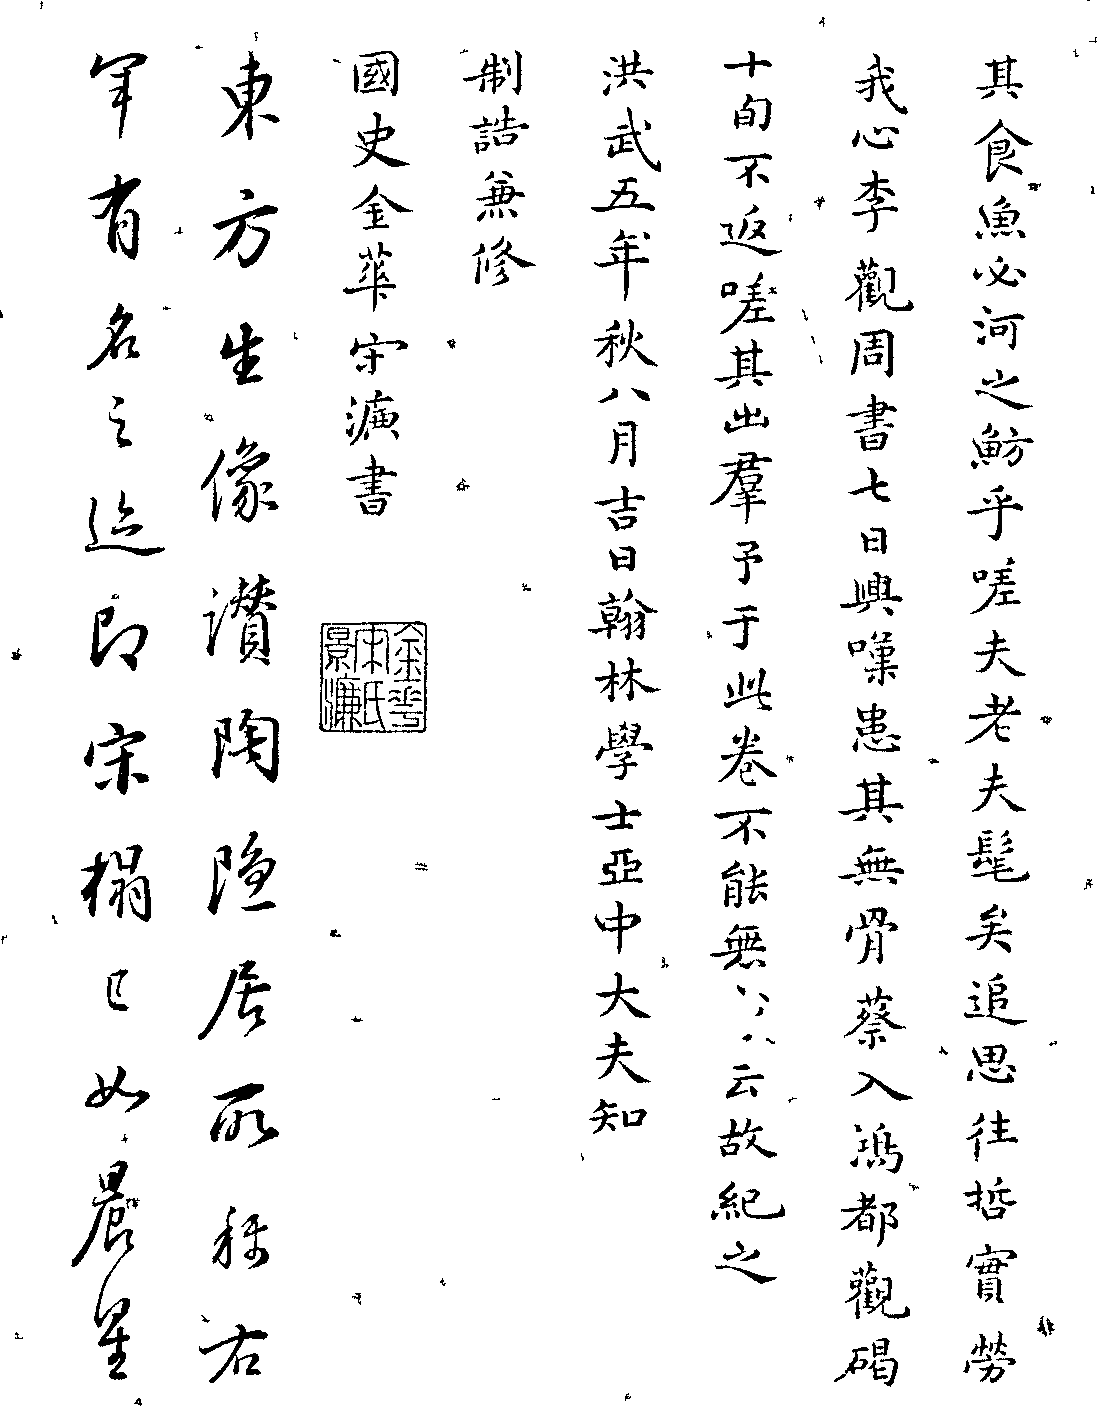 其食魚必河之魴乎嗟夫老夫髦矣追思往哲實勞
我心李觀周書七日興嘆患其無骨蔡入鴻都觀碣
十旬不返嗟其出羣予于此卷不能無云故紀之
洪武五年秋八月吉日翰林學士亞中大夫知
制誥兼修
國史金華宋濂書
金華宋氏景濂
東方生像讚陶隱居所稱右
軍有名之迹即宋榻已如晨星